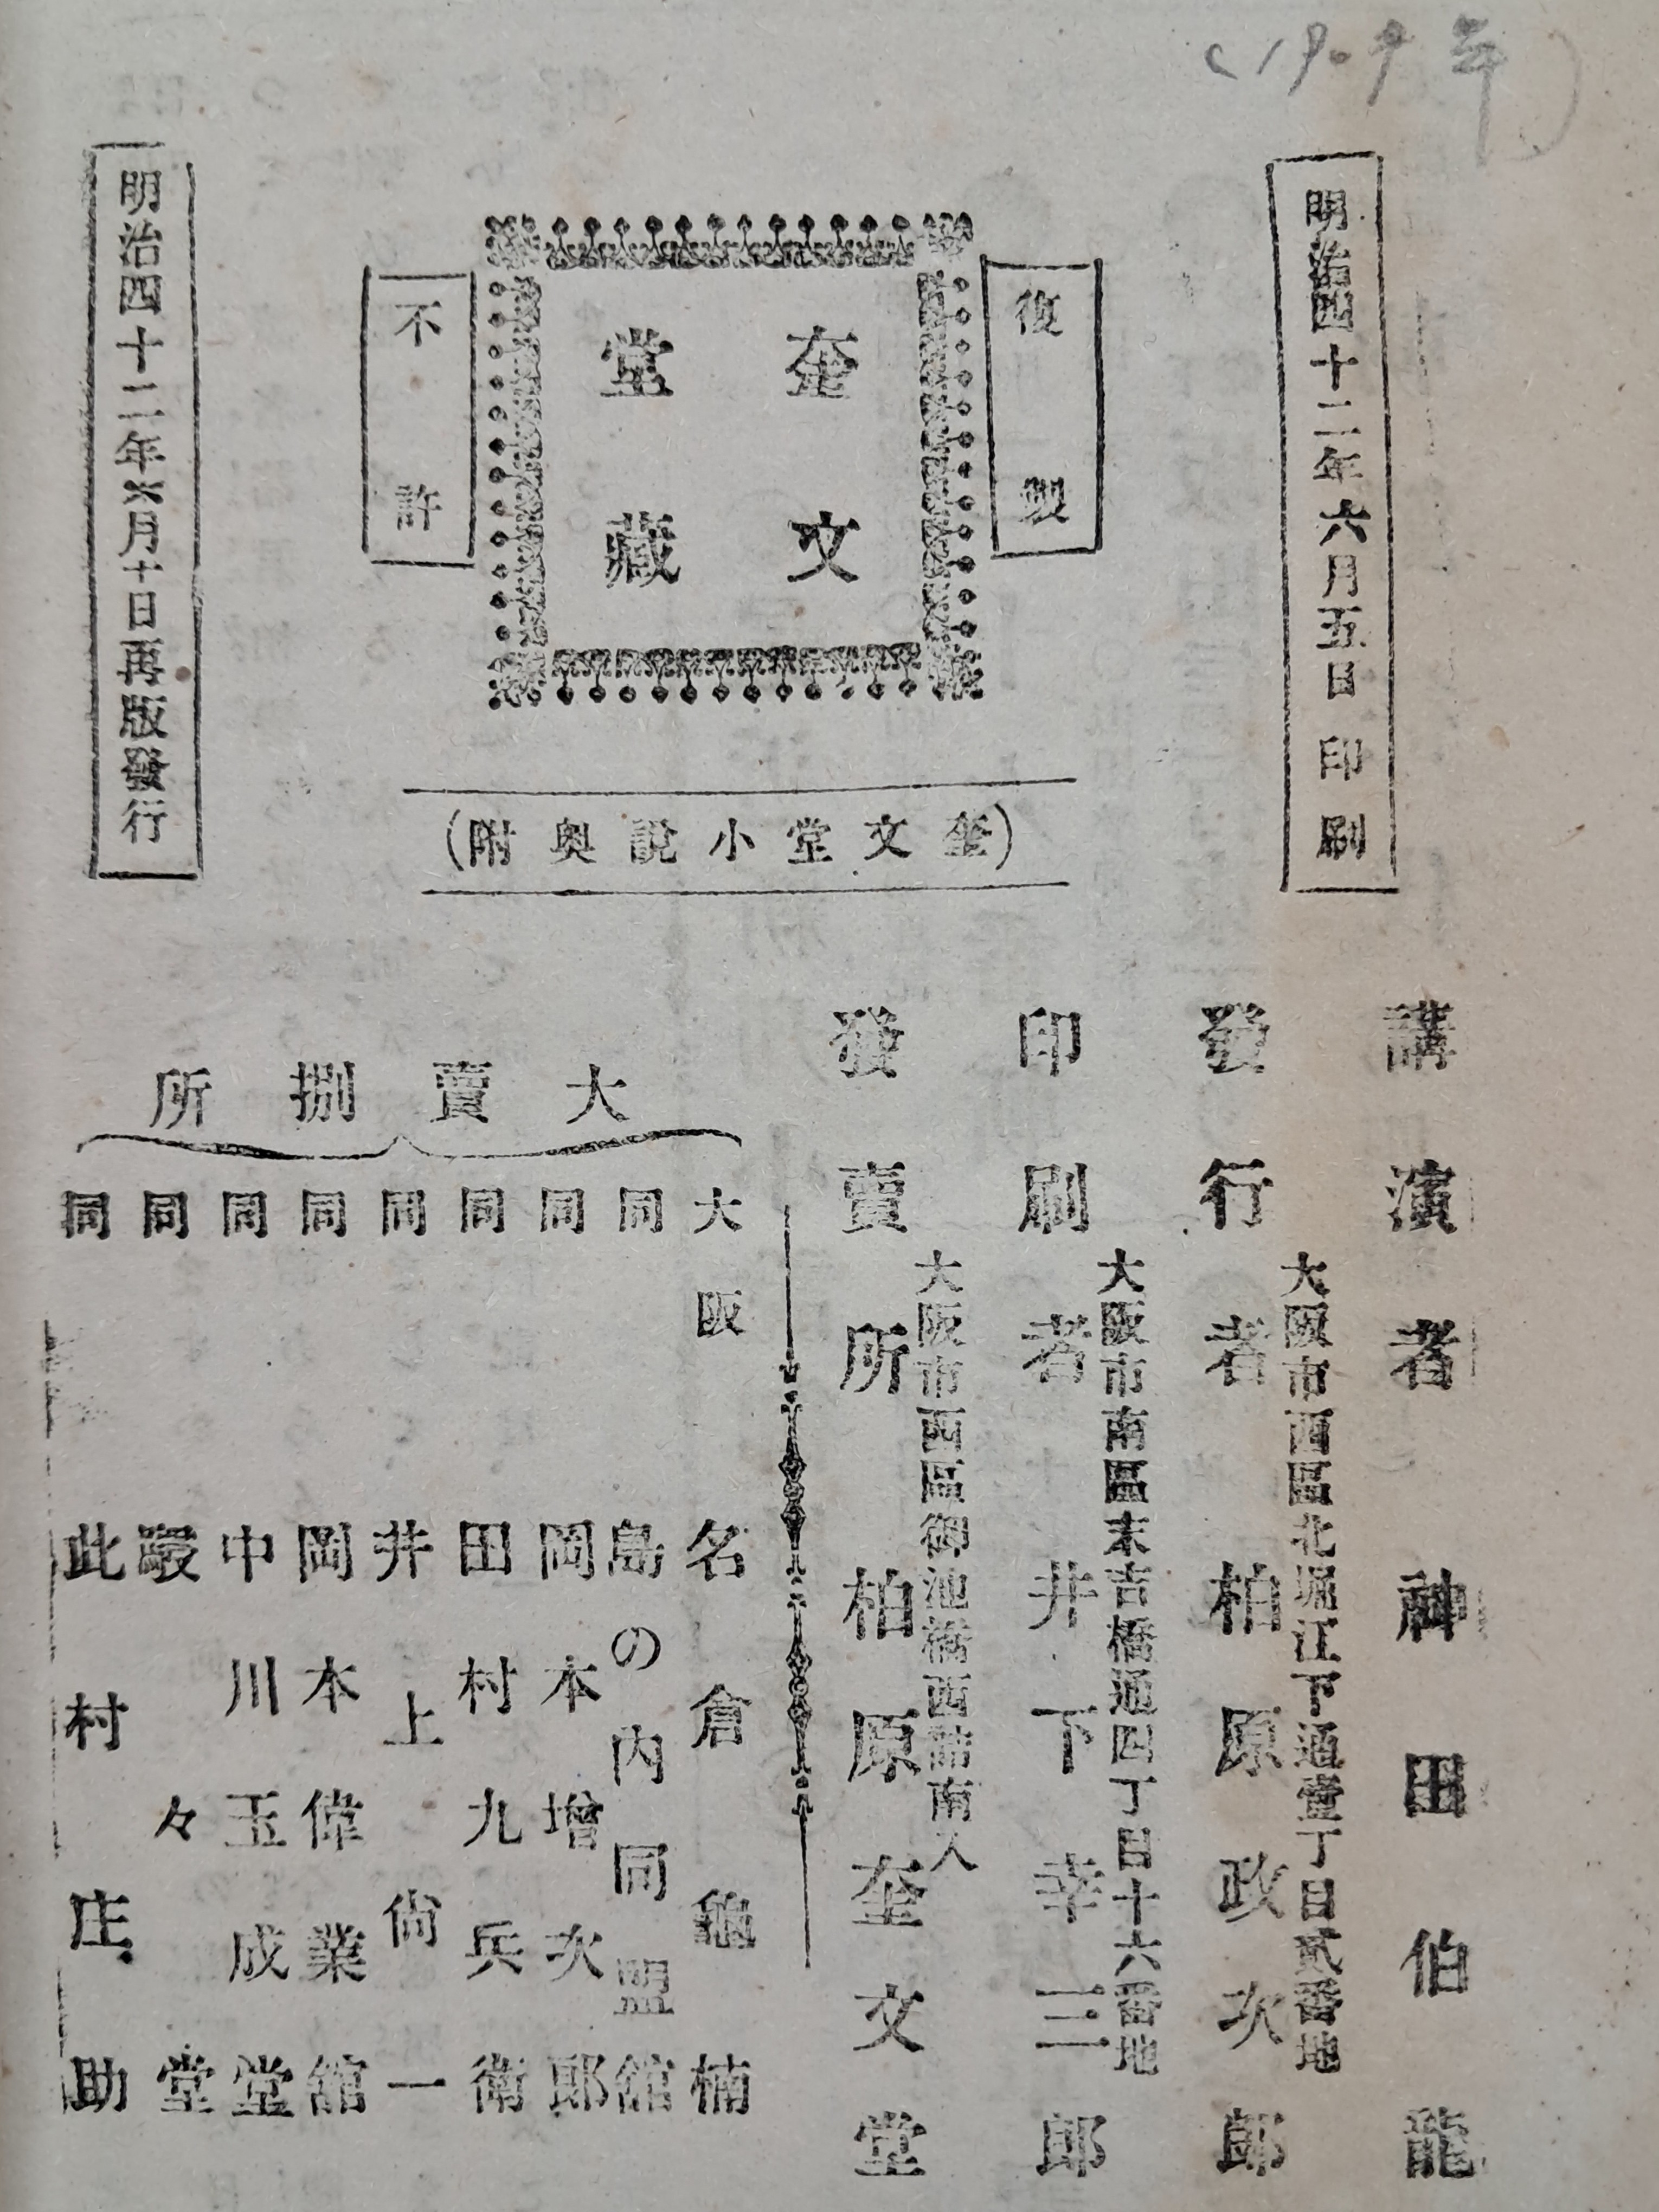 (1909年)
明治四十二年六月五日印刷
復製
奎文
堂藏
不許
明治四十二年六月十日再版發行
(奎文堂小説奥附)
講演者 神田伯龍
大阪市西區北堀江下通壹丁目貳番地
發行者 柏原政次郎
大阪市南區末吉橋通四丁目十六番地
印刷者 井下幸三郎
大阪市西區御池橋西詰南入
發賣所 柏原奎文堂
大賣捌所
大阪 名倉龜楠
同 島の内同盟館
同 岡本增次郎
同 田村九兵衛
同 井上尚一
同 岡本偉業館
同 中川玉成堂
同 巖々堂
同 此村庄助